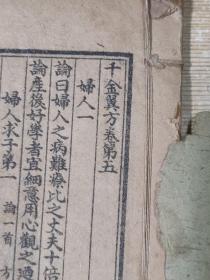 千金翼方卷第五
婦人一
論曰婦人之病難療比之丈夫十倍
論產後好學者宜細意用心觀之遇
婦人求子第一 論一首 方